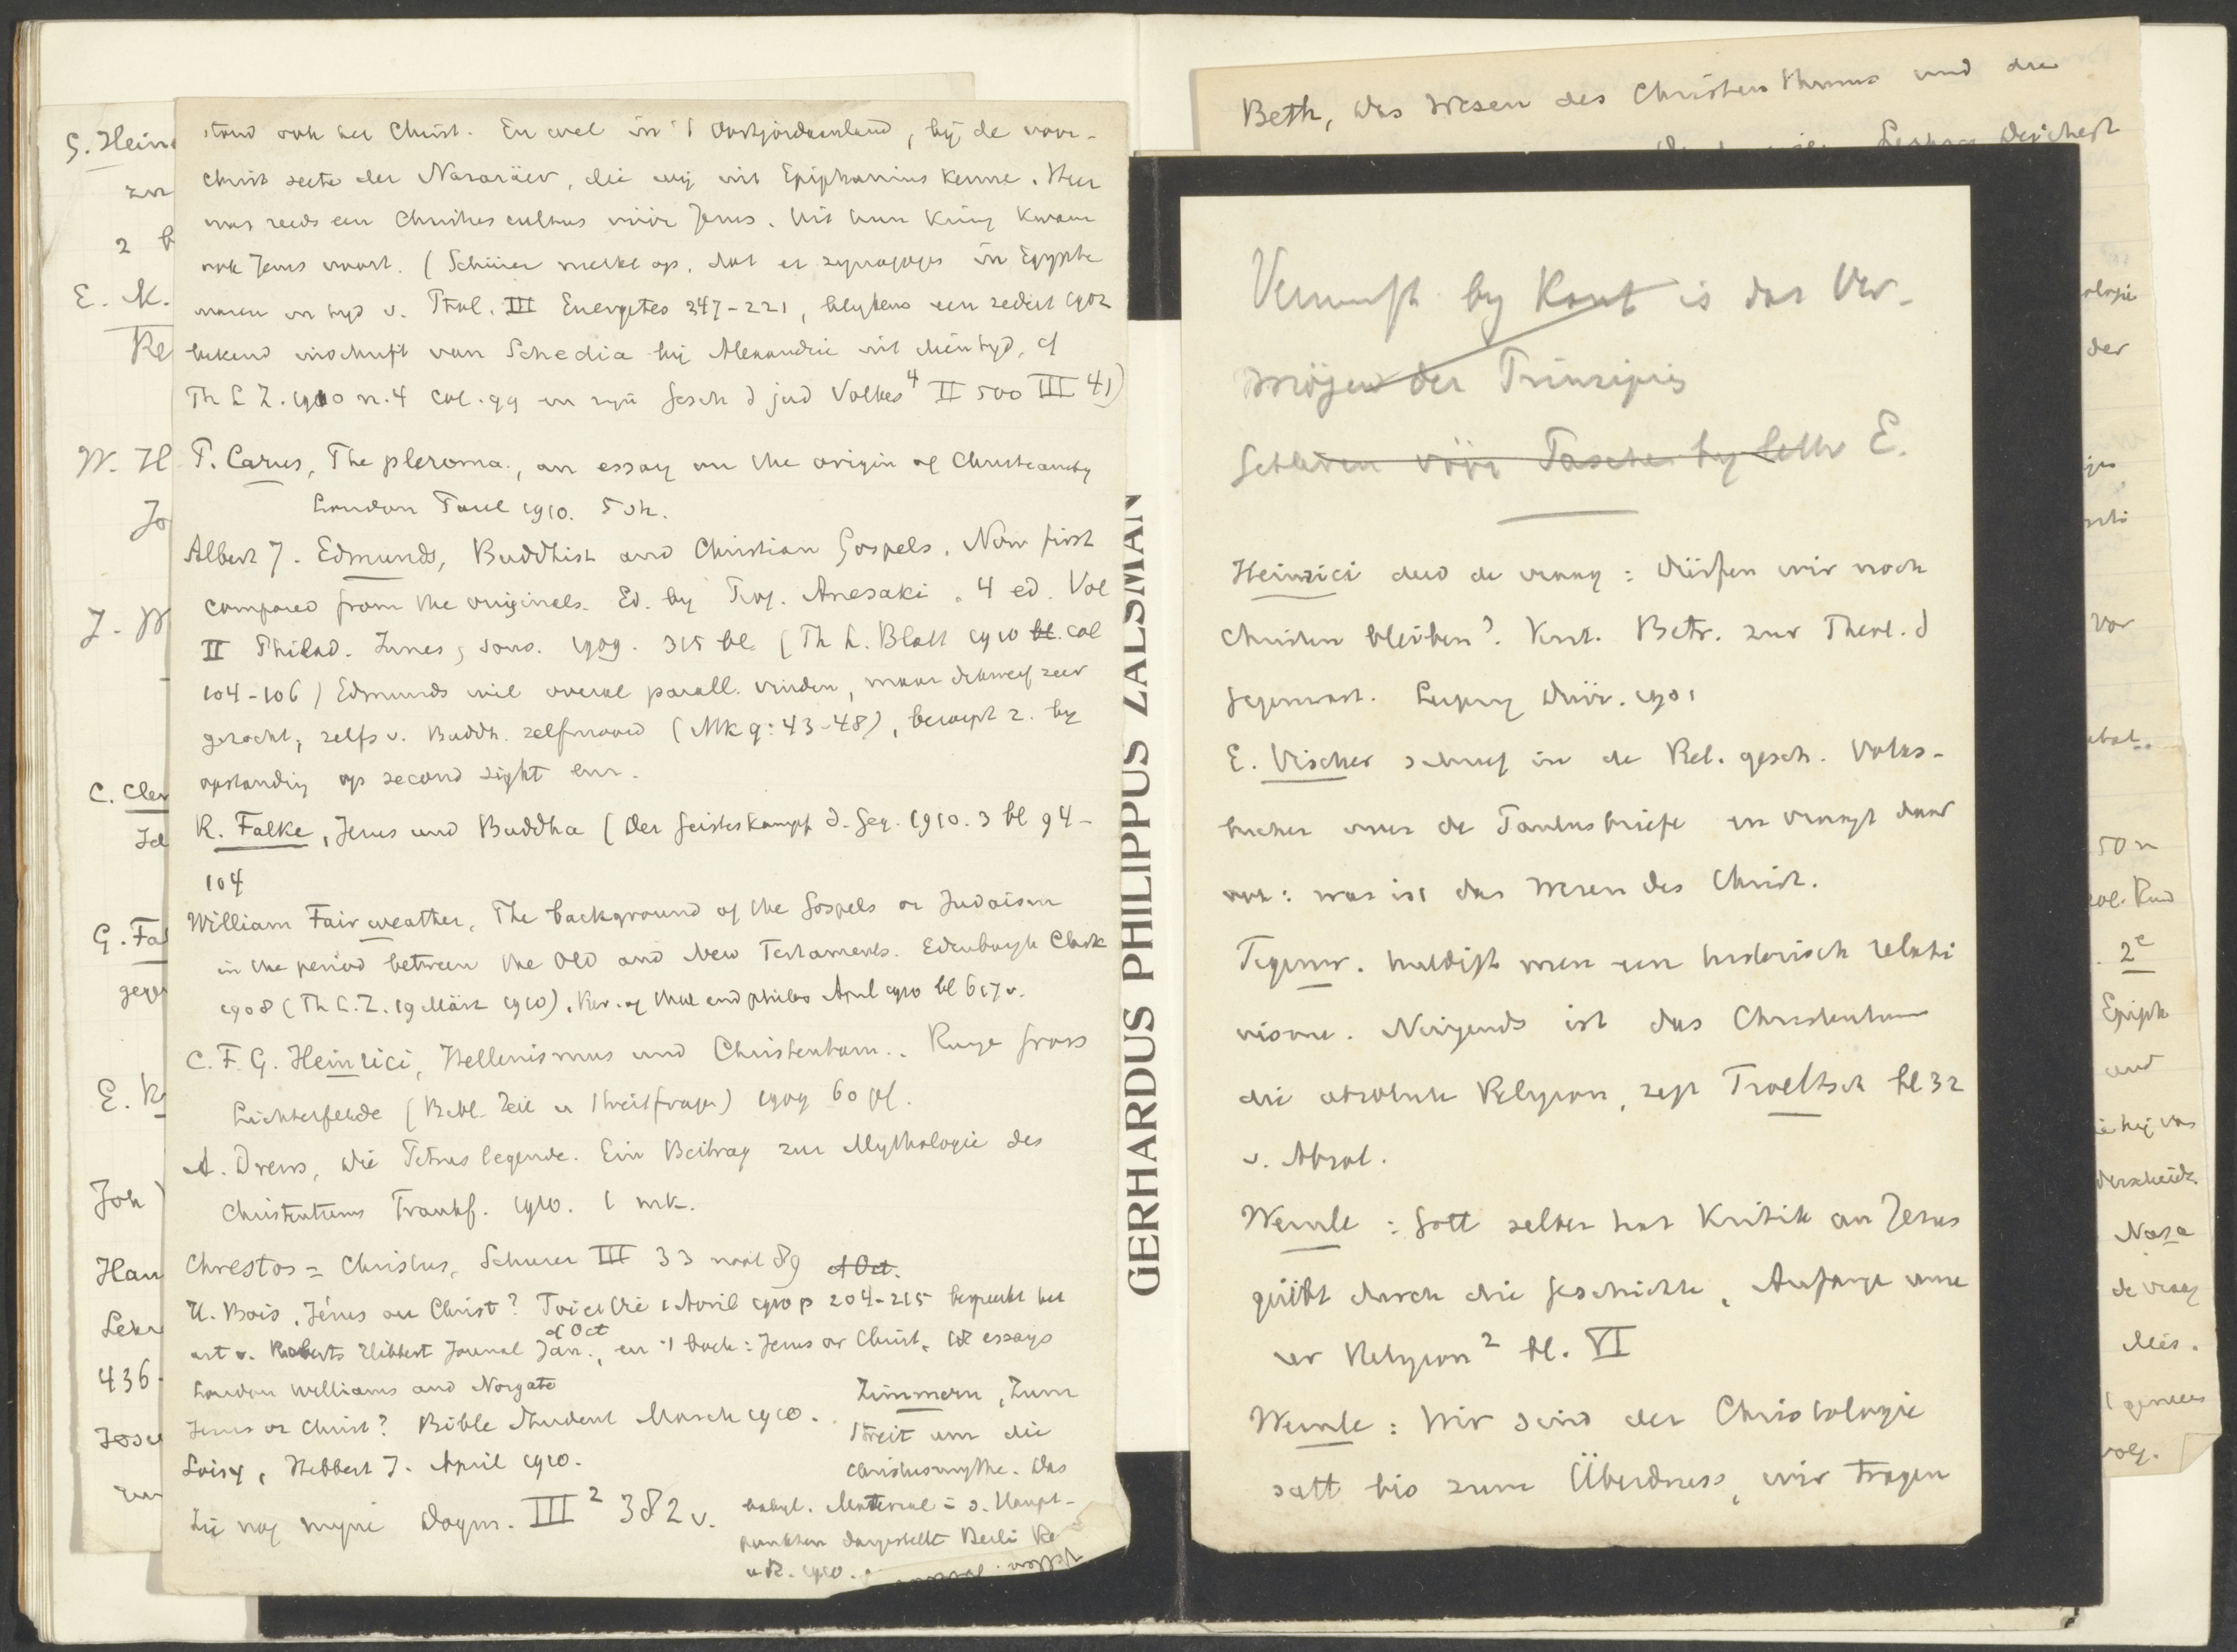 stond ook het Christ. En wel in 't Oostjordaanland, bij de voor-
christ secte der Nazaräer, die wij uit Epiphanius kennen. Hier
was reeds een Christus cultus vóór Jezus. Uit hun kring kwam
ook Jezus voort. (Schürer merkt op, dat er synagoges in Egypte
waren in tijd v. Ptol. III Euergetes 247-221, blijkens een sedert 1902
bekend inschrift van Schedia bij Alexandrie uit dien tijd, cf
Th L Z. 1910 n. 4 col. 99 en zijn Gesch d jud Volkes⁴ II 500 III 41)
P. Carus, The pleroma, an essay on the origin of Christianity
London Paul 1910. 5 sh.
Albert J. Edmunds, Buddhist and Christian Gospels. Now first
compared from the originals. Ed. by Prof. Anesaki. 4 ed. Vol
II Philad. Innes, sons. 1909. 315 bl. (Th L. Blatt 1910 bl. col
104-106) Edmunds wil overal parall. vinden, maar dikwijls zeer
gezocht, zelfs v. Buddh. zelfmoord (Mk 9:43-48), beroept z. bij
opstanding op second sight enz.
R. Falke, Jesus und Buddha (Der Geisteskampf d. Geg. 1910. 3 bl 94-
104
William Fairweather, The background of the Gospels or Judaism
in the period between the Old and New Testaments. Edinburgh Clark
1908 (Th L. Z. 19 März 1910). Rev. of theol and philos April 1910 bl 617 v.
C. F. G. Heinrici, Hellenismus und Christentum. Runge Gross
Lichterfelde (Bibl. Zeit u Streitfragen) 1909 60 pf.
A. Drews, Die Petruslegende. Ein Beitrag zur Mythologie des
Christentums Frankf. 1910. 1 mk.
Chrestos = Christus, Schurer III 33 noot 89 of Oct.
H. Bois, Jésus ou Christ? Foi et Vie 1 Avril 1910 p 204-215 bespreekt het
of Oct
art v. Roberts Hibbert Journal Jan., en 't boek: Jesus or Christ, 18 essays
London Williams and Norgate
Jesus or Christ? Bible Student March 1910.
Loisy, Hibbert J. April 1910.
Zie nog mijne Dogm. III² 382 v.
Zimmern, Zum
Streit um die
Christusmythe. Das
babyl. Material in s. Haupt-
punkten dargestellt Berlin Re
u R. 1910.
G. Hein
zur
2 b
E. K.
Re
W. H
Jo
J. W
C. Clem
G. Fa
E. K
Joh
Han
436
GERHARDUS PHILIPPUS ZALSMAN
Beth, Das Wesen des Christenthums und die
Leipzig Deichert
Vernunft by Kant is das Ver-
mögen der Prinzipien
E.
Heinrici deed de vraag: Dürfen wir noch
Christen bleiben? Krit. Betr. zur Theol. d
Gegenwart. Leipzig Dürr. 1901
E. Vischer schreef in de Rel. gesch. Volks-
bucher over de Paulusbriefe en vraagt daar
ook: was ist das Wesen des Christ.
Tegenw. huldigt men een historisch relati
visme. Nirgends ist das Christenthum
die absolute Religion, zegt Troeltsch bl 32
v. Absol.
Wernle: Gott selber hat Kritik an Jesus
geübt durch die Geschichte, Anfänge unse
rer Religion² bl. VI
Wernle: Wir sind der Christologie
satt bis zum Überdruss, wir tragen
ologie
der
Vor
50 n
2e
Epiph
and
Nasa
de vraag
Mes.
volg.